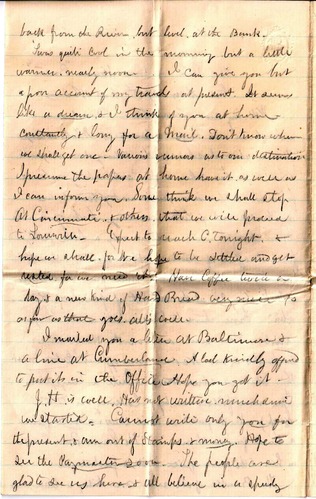 back from the River, but level, at the Bank.
Twas quite Cool in the morning but a little
warmer, nearly noon. I can give you but
a poor account of my travels at present. It seems
like a dream, & I think of you at home
constantly & long for a Mail. Don't know when
we shall get one. Various rumors as to our destination
I presume the papers at home have it, as well as
I can inform you. Some think we shall stop
at Cincinnati. & others, that we will proceed
to Louisville. Expect to reach C. tonight. &
hope we shall. for we hope to be settled and get
rested for we need it. Have Coffee twice a
day & a new kind of Hard Bread very nice
as far as that goes. all's well.
I mailed you a letter at Baltimore &
a line at Cumberland. A lad kindly offered
to post it in the Office. Hope you got it.
J.H. is well, Has not written much since
we started. Cannot write only you for
the present, & am out of Stamps & money. Hope to
see the Paymaster soon. The people are
glad to see us here, & all believe in a speedy